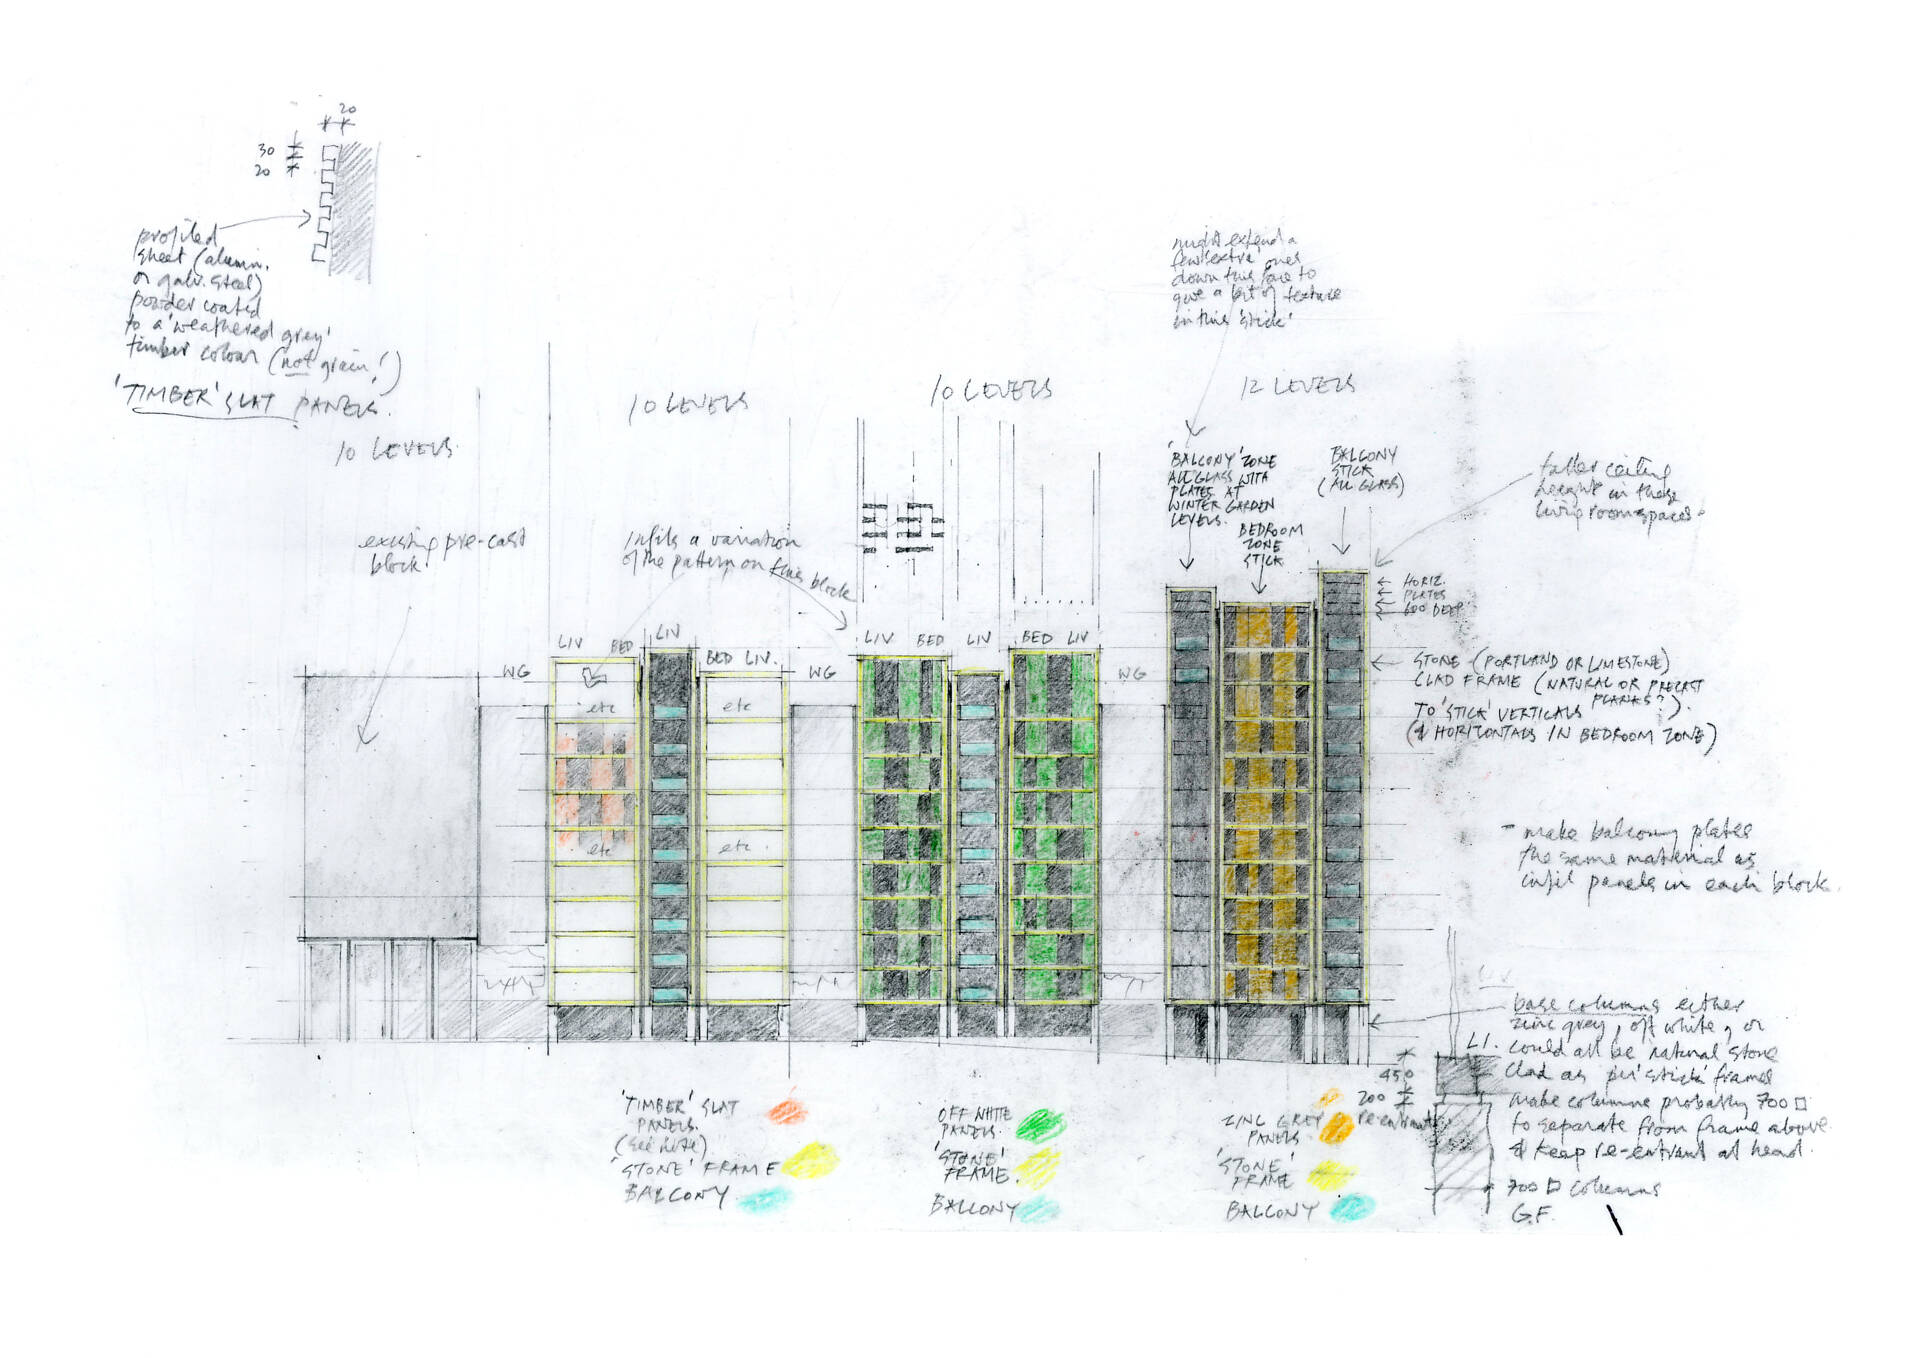 20
30
20
profiled
sheet (alumin.
or galv. steel)
powder coated
to a 'weathered grey'
timber colour (not grain!)
'TIMBER' SLAT PANELS.
10 LEVELS
10 LEVELS
10 LEVELS
12 LEVELS
might extend a
few extra ones
down this face to
give a bit of texture
in this 'stick'
existing pre-cast
block.
infills a variation
of the pattern on this block
'BALCONY' ZONE
ALL GLASS WITH
PLATES AT
WINTER GARDEN
LEVELS.
BEDROOM
ZONE
STICK
BALCONY
STICK
(ALL GLASS)
taller ceiling
height in these
living room spaces.
HORIZ.
PLATES
600 DEEP
STONE (PORTLAND OR LIMESTONE)
CLAD FRAME (NATURAL OR PRECAST
PLANKS?).
TO 'STICK' VERTICALS
(& HORIZONTALS IN BEDROOM ZONE)
WG
LIV
BED
LIV
BED LIV.
WG
LIV
BED
LIV
BED LIV
WG
etc
etc
etc
etc
- make balcony plates
the same material as
infil panels in each block.
base columns either
zinc grey, off white, or
could all be natural stone
clad as per 'stick' frames
make columns probably 700 □
to separate from frame above
& keep re-entrant at head.
700 □ columns
G.F.
L1.
450
200
re-entrant
'TIMBER' SLAT
PANELS.
(see note)
'STONE' FRAME
BALCONY
OFF WHITE
PANELS.
'STONE'
FRAME.
BALCONY
ZINC GREY
PANELS
'STONE'
FRAME
BALCONY